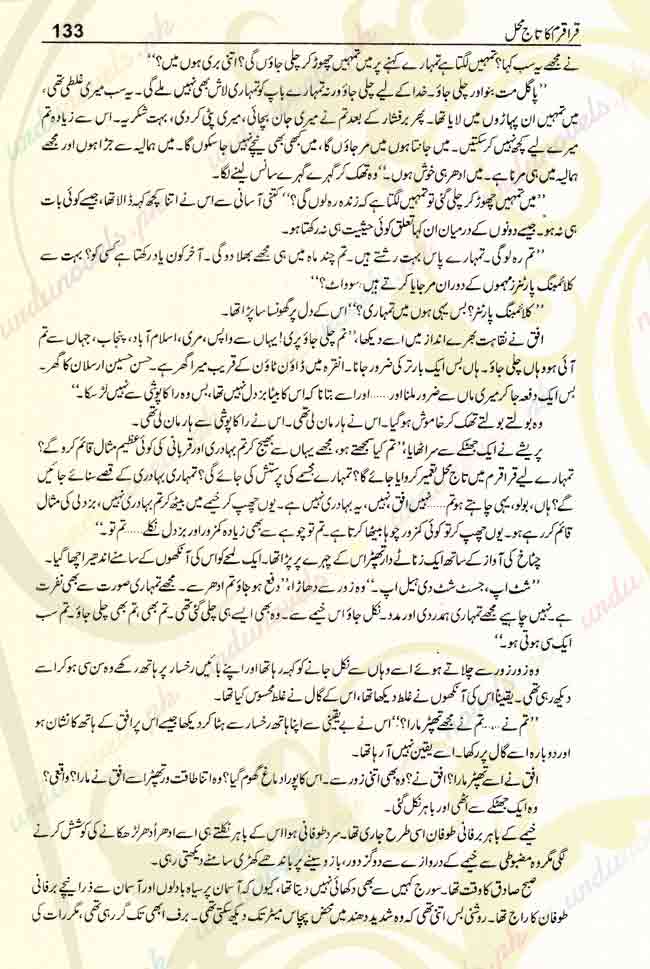 قراقرم کا تاج محل 133
نے مجھے یہ سب کہا؟ تمہیں لگتا ہے تمہارے کہنے پر میں تمہیں چھوڑ کر چلی جاؤں گی؟ اتنی بری ہوں میں؟‘‘
’’پاگل مت بنو اور چلی جاؤ۔ خدا کے لیے چلی جاؤ ورنہ تمہارے باپ کو تمہاری لاش بھی نہیں ملے گی۔ یہ سب میری غلطی تھی،
میں تمہیں ان پہاڑوں میں لایا تھا۔ پھر برفشار کے بعد تم نے میری جان بچائی، میری پٹی کر دی، بہت شکریہ۔ اس سے زیادہ تم
میرے لیے کچھ نہیں کر سکتیں۔ میں جانتا ہوں میں مر جاؤں گا، میں کبھی بھی نیچے نہیں جا سکوں گا۔ میں ہمالیہ سے جڑا ہوں اور مجھے
ہمالیہ میں ہی مرنا ہے۔ میں ادھر ہی خوش ہوں۔‘‘ وہ تھک کر گہرے گہرے سانس لینے لگا۔
’’میں تمہیں چھوڑ کر چلی گئی تو تمہیں لگتا ہے کہ زندہ رہ لوں گی؟‘‘ کتنی آسانی سے اس نے اتنا کچھ کہہ ڈالا تھا، جیسے کوئی بات
ہی نہ ہو۔ جیسے دونوں کے درمیان ان کہا تعلق کوئی حیثیت ہی نہ رکھتا ہو۔
’’تم رہ لو گی۔ تمہارے پاس بہت رشتے ہیں۔ تم چند ماہ میں ہی مجھے بھلا دو گی۔ آخر کون یاد رکتا ہے کسی کو؟ بہت سے
کلائمبنگ پارٹنرز مہموں کے دوران مر جایا کرتے ہیں، سو واٹ؟‘‘
’’کلائمبنگ پارٹنر؟ بس یہی ہوں میں تمہاری؟‘‘ اس کے دل پر گھونسا سا پڑا تھا۔
افق نے نقاہت بھرے انداز میں اسے دیکھا، ’’تم چلی جاؤ پری! یہاں سے واپس، مری، اسلام آباد، پنجاب، جہاں سے تم
آئی ہو وہاں چلی جاؤ۔ ہاں بس ایک بار ترکی ضرور جانا۔ انقرہ میں ڈاؤن ٹاؤن کے قریب میرا گھر ہے۔ حسن حسین ارسلان کا گھر۔
بس ایک دفعہ جا کر میری ماں سے ضرور ملنا اور...... اور اسے بتانا کہ اس کا بیٹا بزدل نہیں تھا، بس وہ راکا پوشی سے نہیں لڑ سکا۔‘‘
وہ بولتے بولتے تھک کر خاموش ہو گیا۔ اس نے ہار مان لی تھی۔ اس نے راکا پوشی سے ہار مان لی تھی۔
پریشے نے ایک جھٹکے سے سر اٹھایا، ’’تم کیا سمجھتے ہو، مجھے یہاں سے بھیج کر تم بہادری اور قربانی کی کوئی عظیم مثال قائم کرو گے؟
تمہارے لیے قراقرم میں تاج محل تعمیر کروایا جائے گا؟ تمہارے مجسمے کی پرستش کی جائے گی؟ تمہاری بہادری کے قصے سنائے جائیں
گے؟ ہاں، بولو، یہی چاہتے ہو تم...... نہیں افق نہیں، یہ بہادری نہیں ہے۔ یوں چھپ کر خیمے میں بیٹھ کر تم بہادری نہیں، بزدلی کی مثال
قائم کر رہے ہو۔ یوں چھپ کر تو کوئی کمزور چوہا بیٹھا کرتا ہے۔ تم تو چوہے سے بھی زیادہ کمزور اور بزدل نکلے...... تم تو۔‘‘
چٹاخ کی آواز کے ساتھ ایک زناٹے دار تھپڑ اس کے چہرے پر پڑا تھا۔ ایک لمحے کو اس کی آنکھوں کے سامنے اندھیرا چھا گیا۔
’’شٹ اپ، جسٹ شٹ دی ہیل اپ۔‘‘ وہ زور سے دھاڑا، ’’دفع ہو جاؤ تم ادھر سے۔ مجھے تمہاری صورت سے بھی نفرت
ہے۔ نہیں چاہیے مجھے تمہاری ہمدردی اور مدد۔ نکل جاؤ اس خیمے سے۔ وہ بھی ایسے ہی چلی گئی تھی۔ تم بھی، تم بھی چلی جاؤ۔ تم سب
ایک سی ہوتی ہو۔‘‘
وہ زور زور سے چلاتے ہوئے اسے وہاں سے نکل جانے کو کہہ رہا تھا اور اپنے بائیں رخسار پر ہاتھ رکھے وہ سن سی ہو کر اسے
دیکھ رہی تھی۔ یقیناً اس کی آنکھوں نے غلط دیکھا تھا، اس کے گال نے غلط محسوس کیا تھا۔
’’تم نے...... تم نے مجھے تھپڑ مارا؟‘‘ اس نے بے یقینی سے اپنا ہاتھ رخسار سے ہٹا کر دیکھا جیسے اس پر افق کے ہاتھ کا نشان ہو
اور دوبارہ اسے گال پر رکھا۔ اسے یقین نہیں آ رہا تھا۔
افق نے اسے تھپڑ مارا؟ افق نے؟ وہ بھی اتنی زور سے۔ اس کا پورا دماغ گھوم گیا؟ وہ اتنا طاقت ور تھپڑ اسے افق نے مارا؟ واقعی؟
وہ ایک جھٹکے سے اٹھی اور باہر نکل گئی۔
خیمے کے باہر برفانی طوفان اسی طرح جاری تھا۔ سرد طوفانی ہوا اس کے باہر نکلتے ہی اسے ادھر اُدھر لڑھکانے کی کوشش کرنے
لگی مگر وہ مضبوطی سے خیمے کے دروازے سے دو گز دور، بازو سینے پر باندھے کھڑی سامنے دیکھتی رہی۔
صبح صادق کا وقت تھا۔ سورج کہیں سے بھی دکھائی نہیں دیتا تھا، کیوں کہ آسمان پر سیاہ بادلوں اور آسمان سے ذرا نیچے برفانی
طوفان کا راج تھا۔ روشنی بس اتنی تھی کہ وہ شدید دھند میں محض پچاس میٹر تک دیکھ سکتی تھی۔ برف ابھی تک گر رہی تھی، مگر رات کی